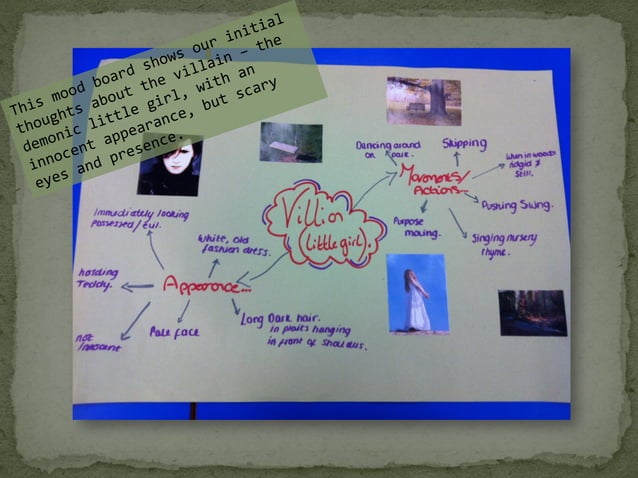 This mood board shows our initial
thoughts about the villain – the
demonic little girl, with an
innocent appearance, but scary
eyes and presence.
Villion
(little girl).
Movements/
Actions...
Dancing around
on park.
Skipping
When in woods
ridgid &
Still.
Pushing Swing.
Singing nursery
rhyme.
Purpose
moving.
Appearence...
Immediately looking
possessed/evil.
White, old
fashion dress.
holding
Teddy.
not
innocent
Pale face
Long Dark hair.
in plaits hanging
in front of shoulders.